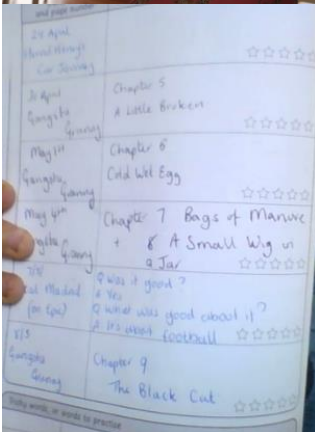 and page number
28 April
Car Journey
30 April
Gangsta
Granny
Chapter 5
A Little Broken
May 1st
Gangsta
Granny
Chapter 6
Cold Wet Egg
May 4th
Gangsta Granny
Chapter 7 Bags of Manure
+ 8 A Small Wig in
a Jar
7/5
Real Madrid
Q Was it good?
A Yes
Q What was good about it?
A It's about football
8/5
Gangsta
Granny
Chapter 9
The Black Cat
Tricky words, or words to practise